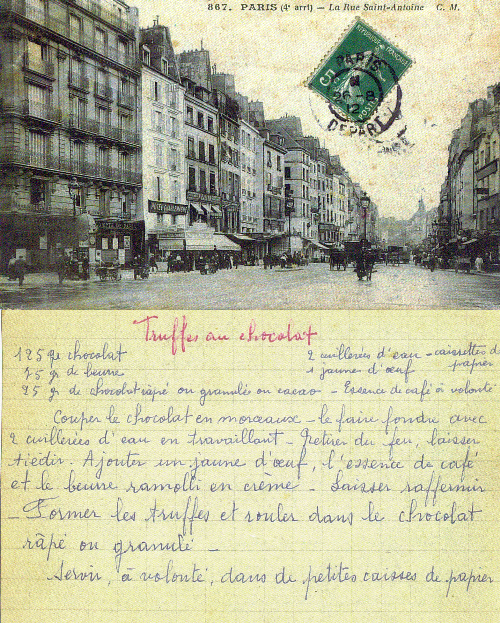 867. PARIS (4e arrt) — La Rue Saint-Antoine C. M.
PARIS
DEPART
Truffes au chocolat
125 gr chocolat
75 gr de beurre
25 gr de chocolat râpé ou granulé ou cacao - Essence de café à volonté
2 cuillerées d'eau - caissettes de papier
1 jaune d'œuf
Couper le chocolat en morceaux - le faire fondre avec
2 cuillerées d'eau en travaillant - Retirer du feu, laisser
tiédir. Ajouter un jaune d'œuf, l'essence de café
et le beurre ramolli en crème - Laisser raffermir
- Former les truffes et rouler dans le chocolat
râpé ou granulé -
Servir, à volonté, dans de petites caisses de papier